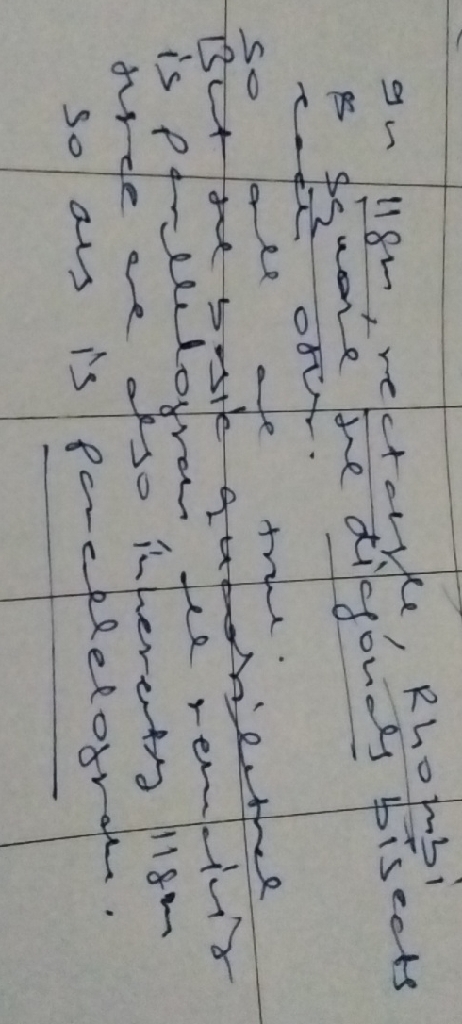 In ||gm, rectangle, Rhombi
& Square the diagonals bisects
each other.
So all are true.
But the basic quadrilateral
is parallelogram all remaining
three are also inherently ||gm
so ans is parallelogram.